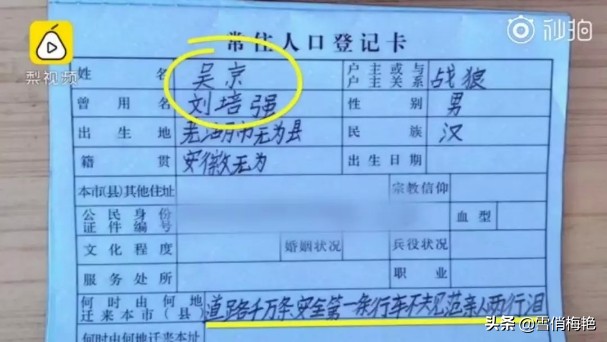 梨视频
秒拍
常住人口登记卡
姓 名 吴京 户主或与户主关系 战狼
曾用名 刘培强 性别 男
出生地 芜湖市无为县 民族 汉
籍贯 安徽无为 出生日期
本市(县)其他住址 宗教信仰
公民身份证件编号 血型
文化程度 婚姻状况 兵役状况
服务处所 职业
何时由何地迁来本市(县) 道路千万条安全第一条行车不规范亲人两行泪
何时由何地迁来本址
头条@雪俏梅艳